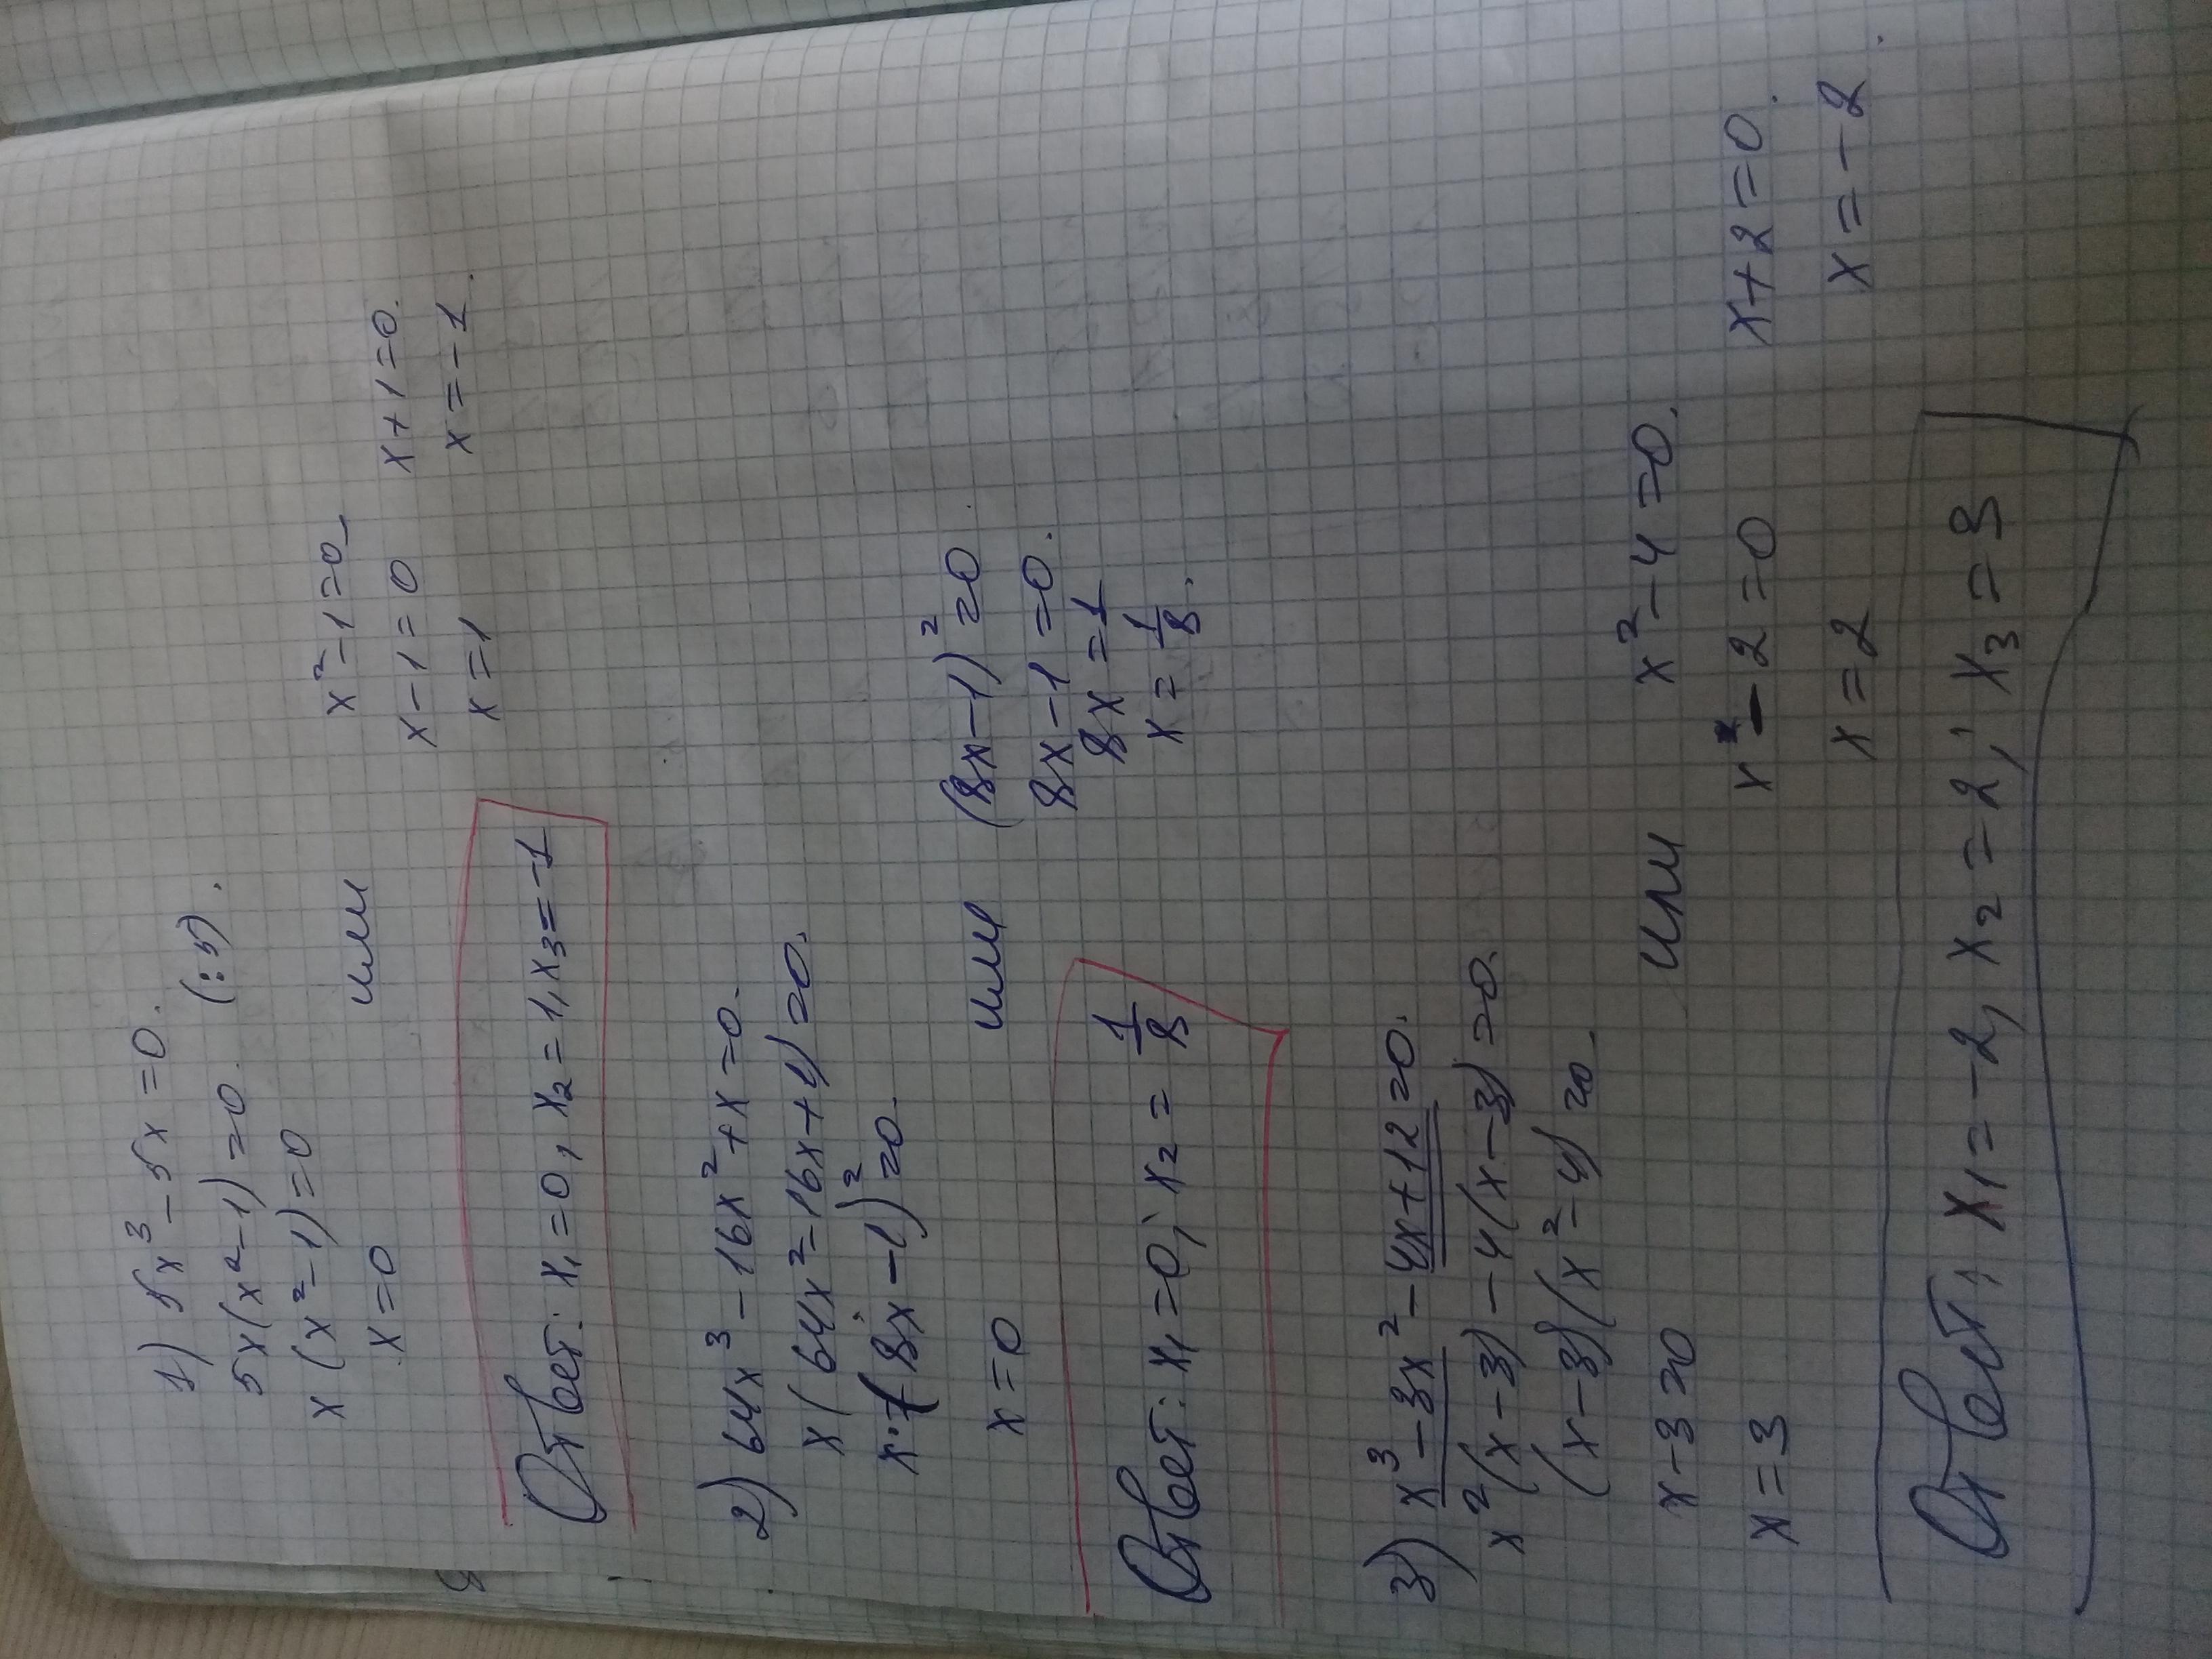 1) 5x³ - 5x = 0.
5x(x² - 1) = 0. (:5).
x(x² - 1) = 0
x = 0 или x² - 1 = 0
x - 1 = 0 x + 1 = 0.
x = 1 x = -1.
Ответ: x₁ = 0, x₂ = 1, x₃ = -1
2) 64x³ - 16x² + x = 0.
x(64x² - 16x + 1) = 0.
x·(8x - 1)² = 0.
x = 0 или (8x - 1)² = 0.
8x - 1 = 0.
8x = 1
x = 1/8.
Ответ: x₁ = 0; x₂ = 1/8
3) x³ - 3x² - 4x + 12 = 0.
x²(x - 3) - 4(x - 3) = 0.
(x - 3)(x² - 4) = 0.
x - 3 = 0 или x² - 4 = 0.
x = 3 x - 2 = 0 x + 2 = 0.
x = 2 x = -2.
Ответ: x₁ = -2, x₂ = 2; x₃ = 3